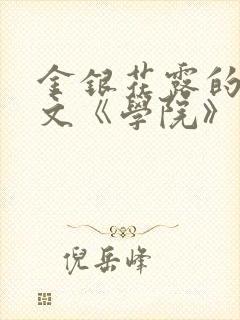 金银花露的
文《學院》
倪岳峰